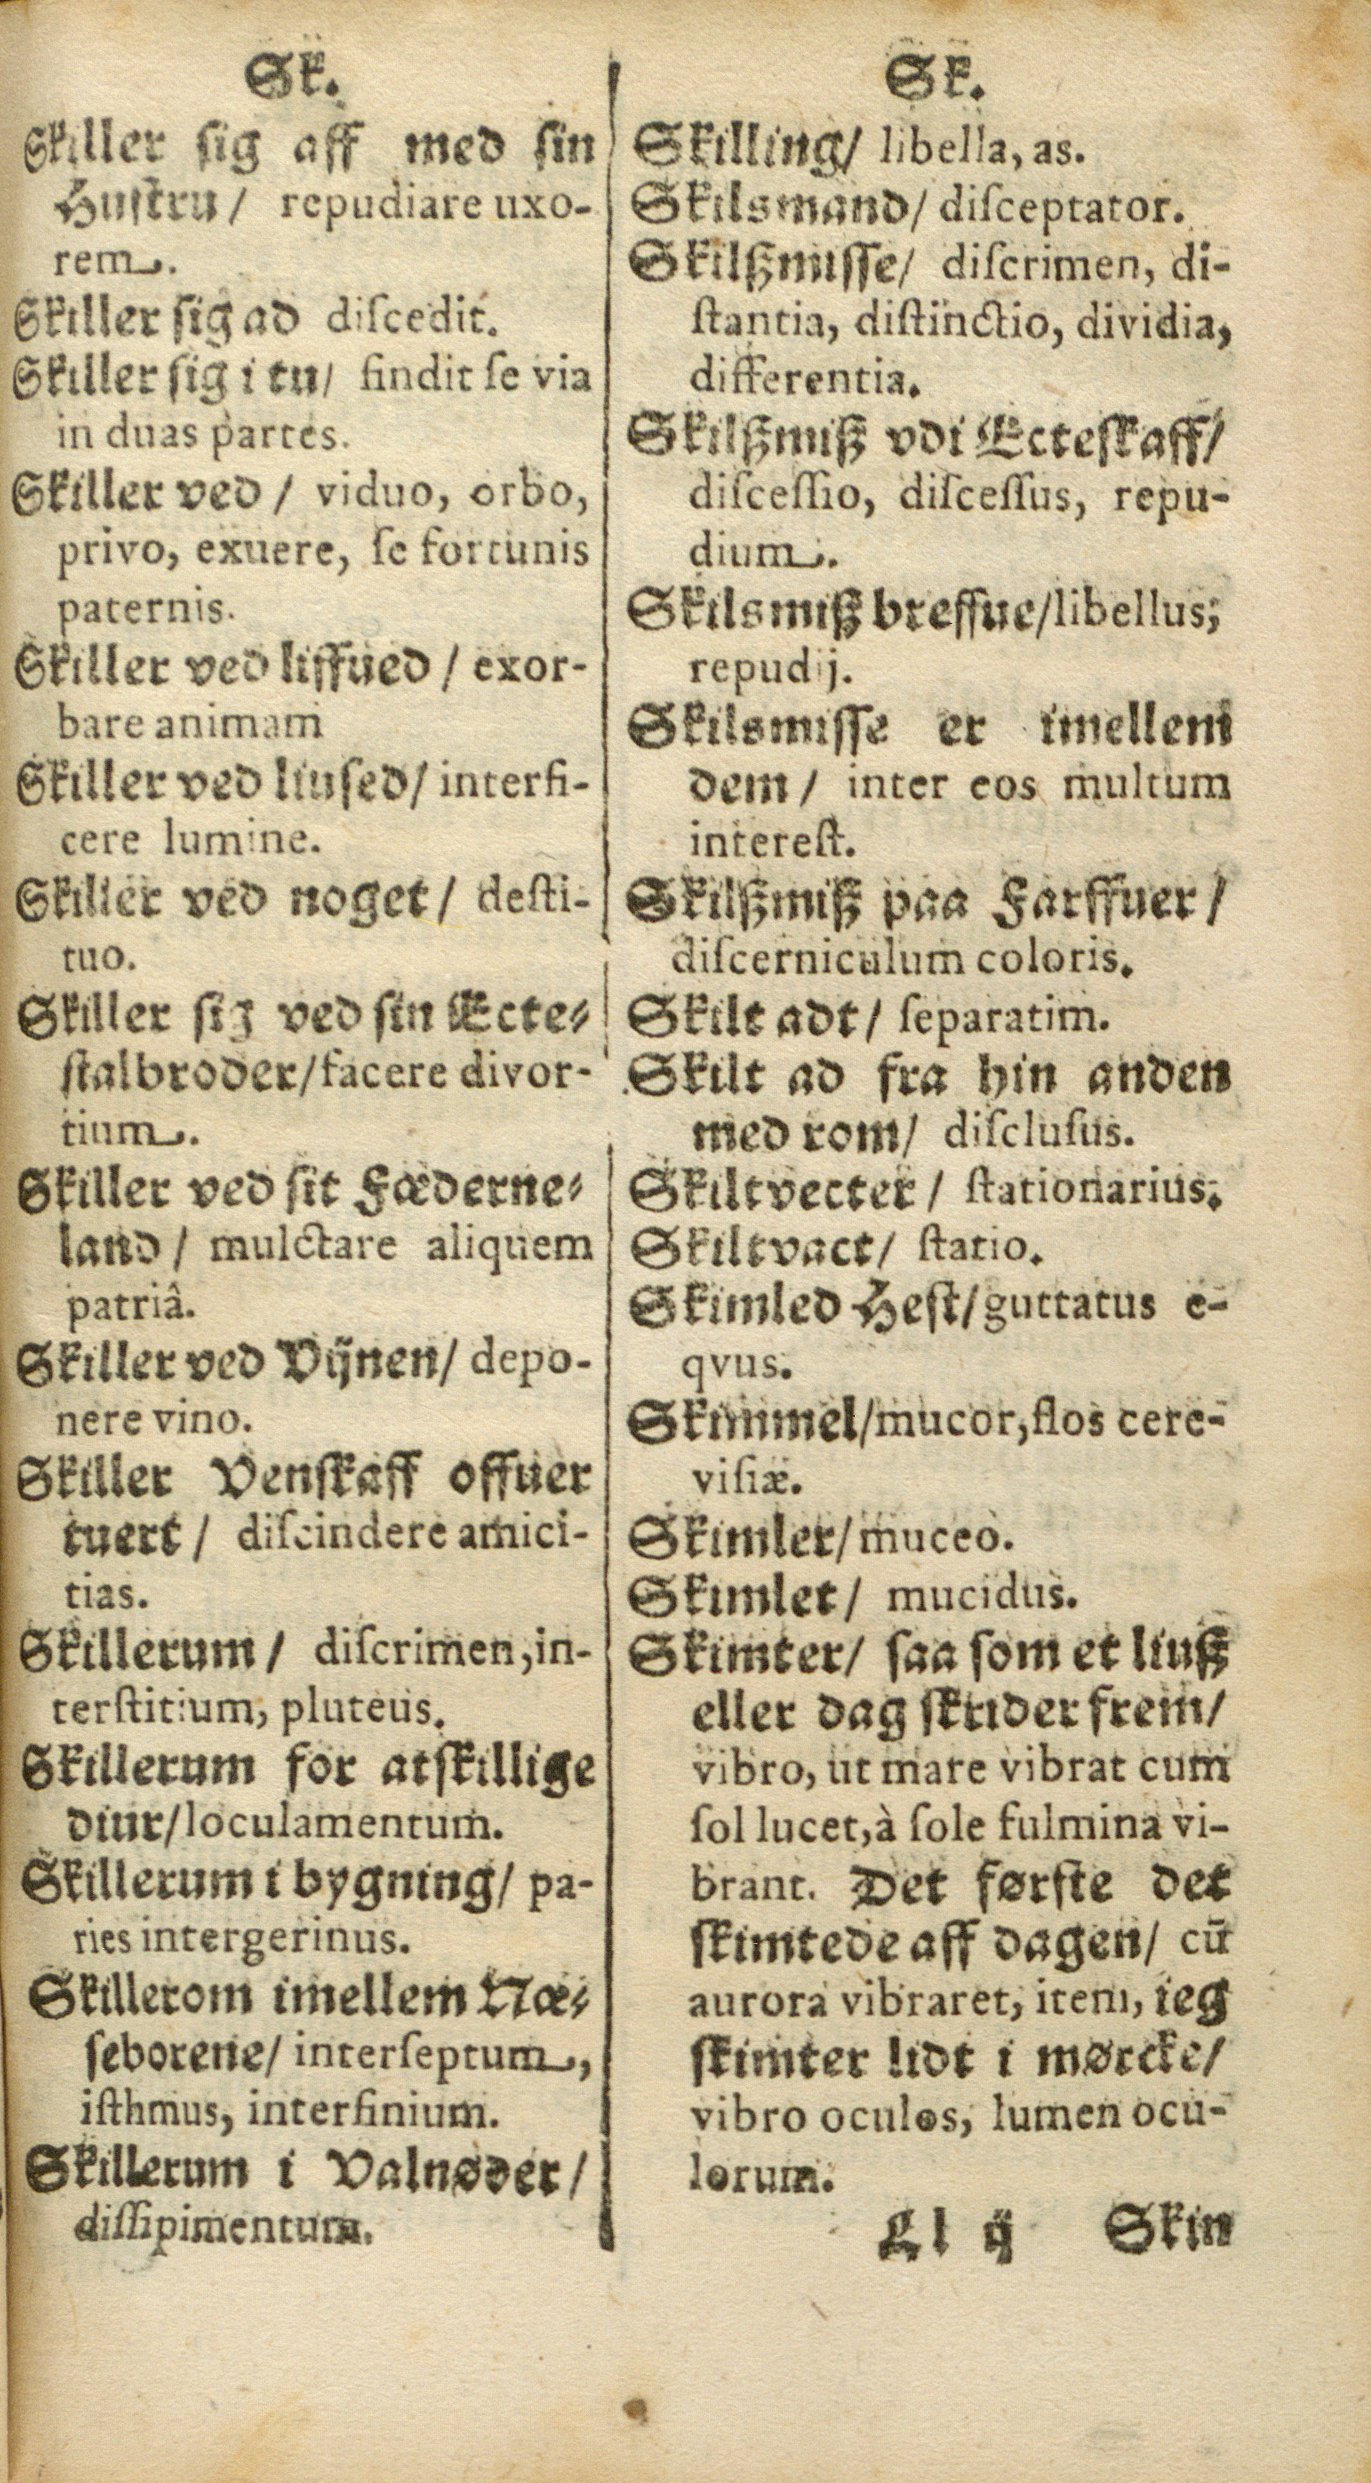 Sk.
Skiller sig aff med sin
Hustru / repudiare uxo-
rem.
Skiller sig ad diſcedit.
Skiller sig i tu/ findit ſe via
in duas partes.
Skiller ved / viduo, orbo,
privo, exuere, ſe fortunis
paternis.
Skiller ved liffued / exor-
bare animam
Skiller ved liuſed/ interfi-
cere lumine.
Skiller ved noget / deſti-
tuo.
Skiller sig ved ſin Ecte-
ſtalbroder/facere divor-
tium.
Skiller ved ſit Fæderne-
land / mulctare aliquem
patriâ.
Skiller ved Vijnen/ depo-
nere vino.
Skiller Venſkaff offuer
tuert / diſcindere amici-
tias.
Skillerum / diſcrimen, in-
terſtitium, pluteus.
Skillerum for atſkillige
diur/loculamentum.
Skillerum i bygning/ pa-
ries intergerinus.
Skillerom imellem Næ-
ſeborene/ interſeptum,
iſthmus, interfinium.
Skillerum i Valnøder /
diſſipimentum.
Sk.
Skilling/ libella, as.
Skilsmand/ diſceptator.
Skilßmiſſe/ diſcrimen, di-
ſtantia, diſtinctio, dividia,
differentia.
Skilßmiß vdi Ecteſkaff/
diſceſſio, diſceſſus, repu-
dium.
Skilsmiß breffue/libellus,
repudij.
Skilsmiſſe er imellem
dem / inter eos multum
intereſt.
Skilßmiß paa Farffuer /
diſcerniculum coloris.
Skilt adt / ſeparatim.
Skilt ad fra hin anden
med rom/ diſcluſus.
Skiltvecter / ſtationarius.
Skiltvact/ ſtatio.
Skimled Heſt/guttatus e-
qvus.
Skimmel/mucor, flos cere-
viſiæ.
Skimler/muceo.
Skimlet/ mucidus.
Skimter/ ſaa ſom et liuß
eller dag ſkrider frem/
vibro, ut mare vibrat cum
ſol lucet, à ſole fulmina vi-
brant. Det førſte det
ſkimtede aff dagen/ cū
aurora vibraret, item, ieg
ſkimter lidt i mørcke/
vibro oculos, lumen ocu-
lorum.
Ll ij Skin